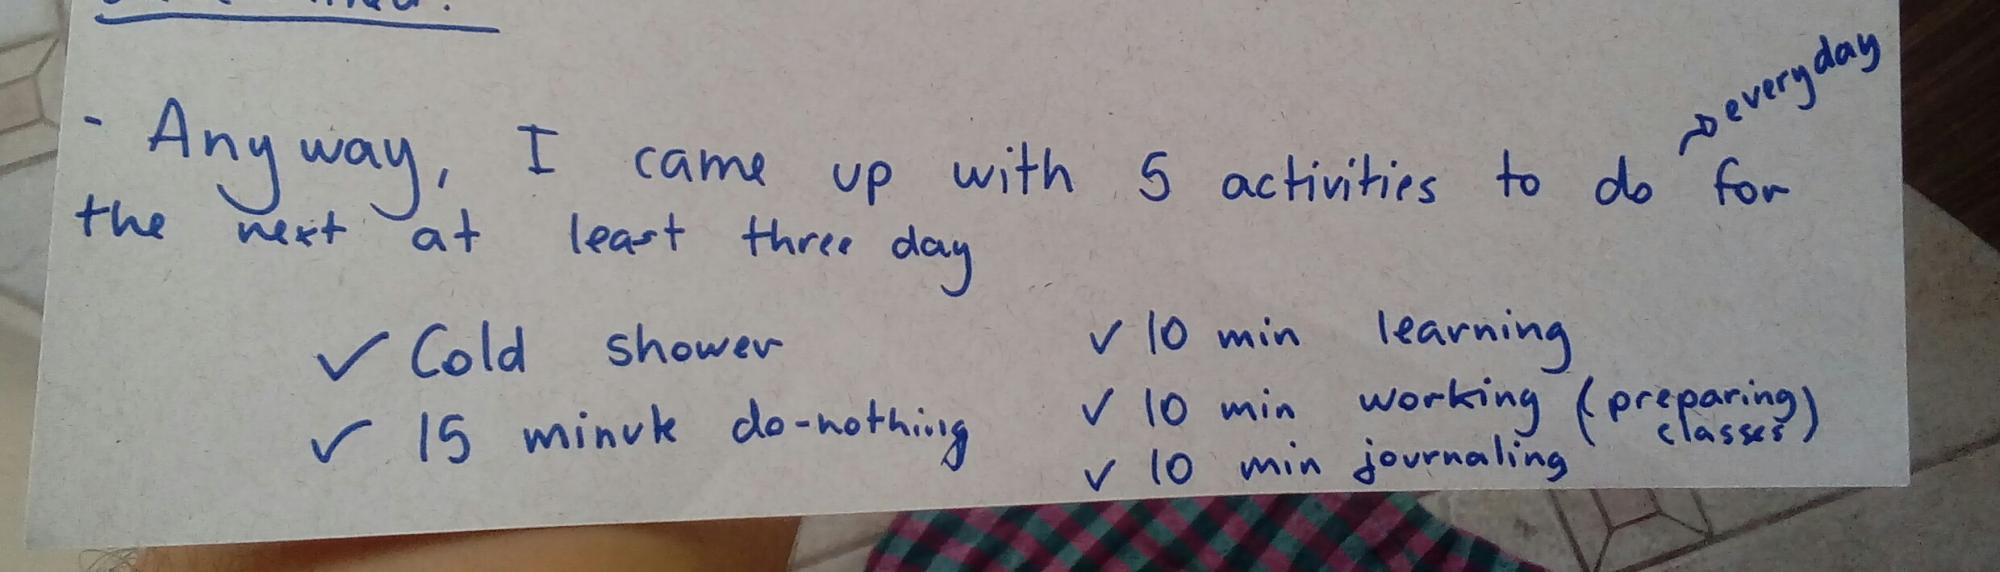 - Anyway, I came up with 5 activities to do → everyday for
the next at least three day
✓ Cold shower
✓ 15 minute do-nothing
✓ 10 min learning
✓ 10 min working (preparing classes)
✓ 10 min journaling